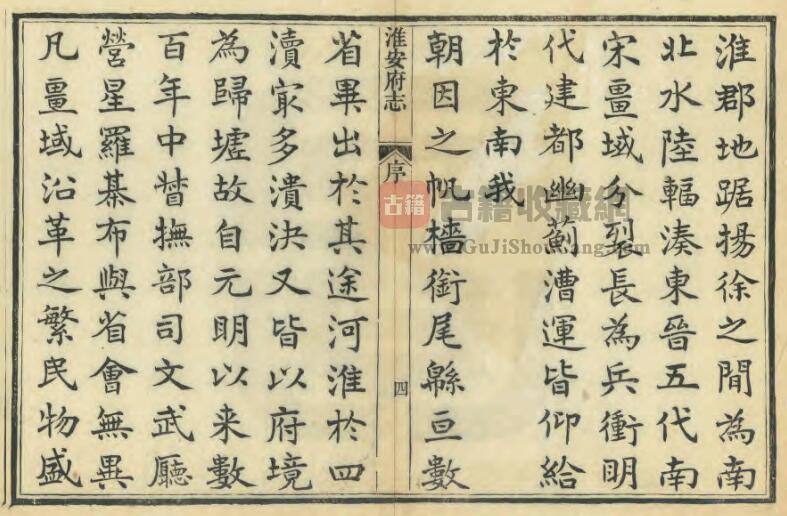 淮郡地踞揚徐之間為南
北水陸輻湊東晉五代南
宋畺域分裂長為兵衝明
代建都幽薊漕運皆仰給
於東南我
朝因之帆檣銜尾緜亘數
淮安府志
序
四
省畢出於其途河淮於四
瀆宼多潰決又皆以府境
為歸墟故自元明以来數
百年中督撫部司文武廳
營星羅棊布與省會無異
凡畺域沿革之繁民物盛
古籍
古籍收藏網
www.GuJiShouCang.com